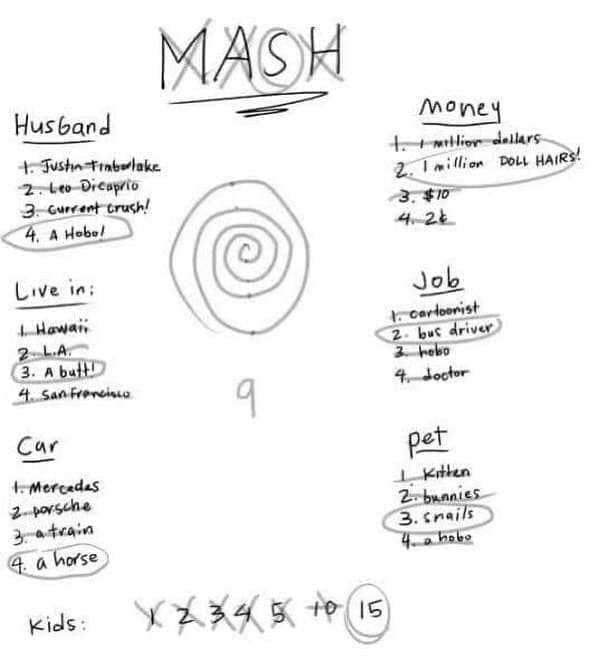 MASH
Husband
1. Justin Timberlake
2. Leo Dicaprio
3. Current Crush!
4. A Hobo!
Live in:
1. Hawaii
2. L.A.
3. A butt!
4. San Francisco
Car
1. Mercedes
2. porsche
3. a train
4. a horse
Money
1. 1 million dollars
2. 1 million DOLL HAIRS!
3. $10
4. 2¢
Job
1. cartoonist
2. bus driver
3. hobo
4. doctor
pet
1. Kitten
2. bunnies
3. snails
4. a hobo
9
Kids: 1 2 3 4 5 10 15